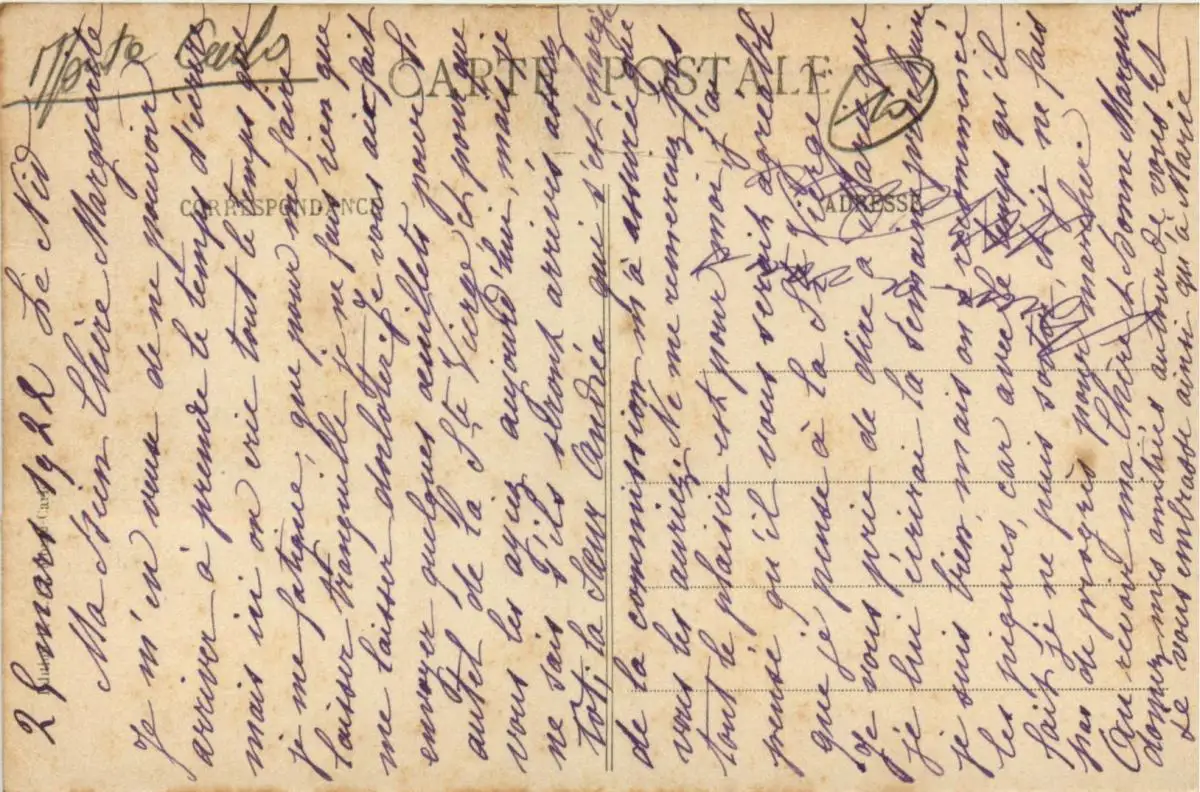 Monte Carlo
CARTE POSTALE
10
CORRESPONDANCE
ADRESSE
25 mars 1922 Le Nid
Ma bien Chère Marguerite
Je m'en veux de ne pouvoir
arriver à prendre le temps d'écrire
mais ici on crie tout le temps que
je me fatigue, que pour me faire
laisser tranquille je ne fais rien que
me laisser dorloter. Je vous ai fait
envoyer quelques œillets pour l'
autel de la Ste Vierge et pour que
vous les ayez aujourd'hui, mais je
ne sais s'ils seront arrivés assez
tôt, la Sœur Andrée qui s'est chargée
de la commission m'a assuré que
vous les auriez. Ne me remerciez pas
tout le plaisir est pour moi, j'ai
pensé qu'il vous serait agréable
que je pense à la Ste Vierge
Je vous prie de dire à Marie que
je lui écrirai la semaine prochaine
je suis bien, mais on a recommencé
les piqures, car avec le temps qu'il
fait je ne puis sortir et je ne fais
pas de progrès pour marcher.
Au revoir ma Chère et bonne Marguerite
donnez mes amitiés autour de vous et
je vous embrasse ainsi qu'à Marie